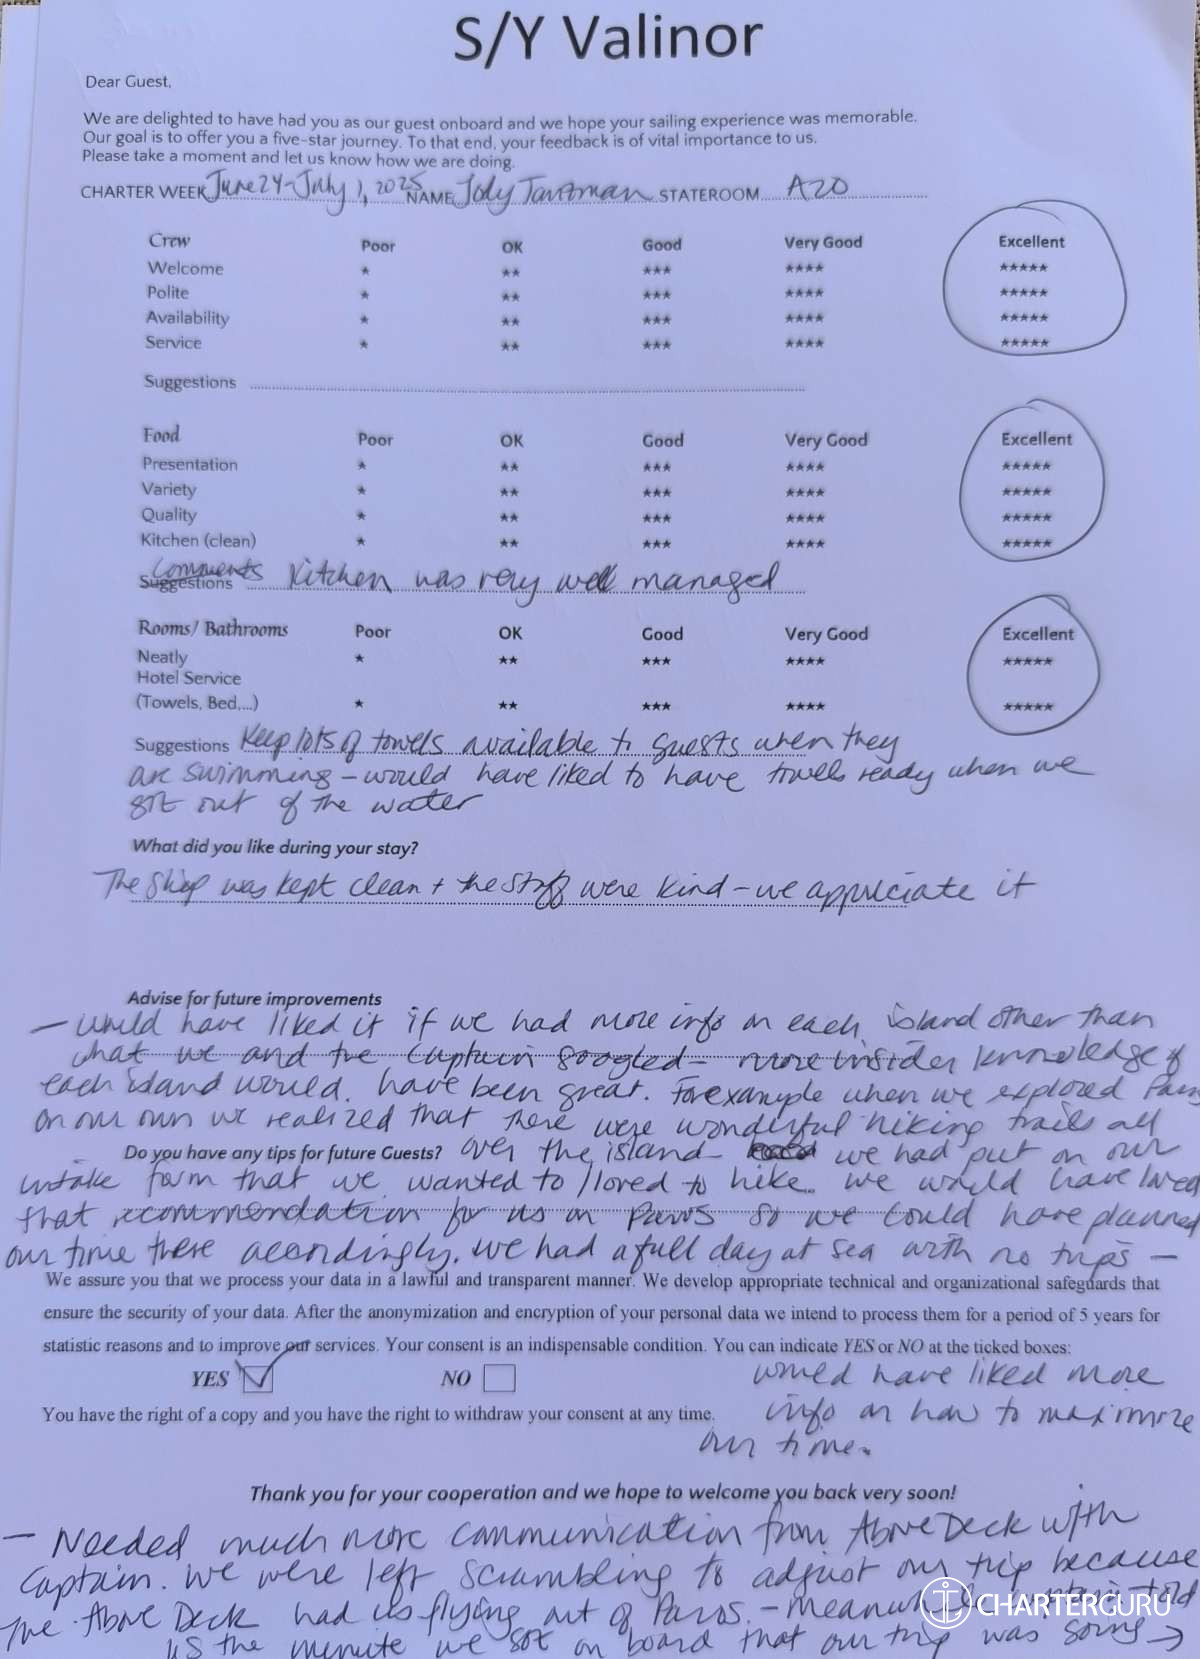 S/Y Valinor
Dear Guest,
We are delighted to have had you as our guest onboard and we hope your sailing experience was memorable.
Our goal is to offer you a five-star journey. To that end, your feedback is of vital importance to us.
Please take a moment and let us know how we are doing.
CHARTER WEEK June 24-July 1, 2025 NAME Jody STATEROOM A20
Crew Poor OK Good Very Good Excellent
Welcome * ** *** **** *****
Polite * ** *** **** *****
Availability * ** *** **** *****
Service * ** *** **** *****
Suggestions
Food Poor OK Good Very Good Excellent
Presentation * ** *** **** *****
Variety * ** *** **** *****
Quality * ** *** **** *****
Kitchen (clean) * ** *** **** *****
Comments
Suggestions Kitchen was very well managed
Rooms/ Bathrooms Poor OK Good Very Good Excellent
Neatly * ** *** **** *****
Hotel Service
(Towels, Bed,...) * ** *** **** *****
Suggestions Keep lots of towels available to guests when they
are swimming - would have liked to have towels ready when we
got out of the water
What did you like during your stay?
The ship was kept clean + the staff were kind - we appreciate it
Advise for future improvements
- Would have liked it if we had more info on each island other than
what we and the captain googled - more insider knowledge of
each island would have been great. For example when we explored Paros
on our own we realized that there were wonderful hiking trails all
Do you have any tips for future Guests? over the island - we had put on our
intake form that we wanted to / loved to hike. We would have loved
that recommendation for us on Paros so we could have planned
our time there accordingly. We had a full day at sea with no trips -
We assure you that we process your data in a lawful and transparent manner. We develop appropriate technical and organizational safeguards that
ensure the security of your data. After the anonymization and encryption of your personal data we intend to process them for a period of 5 years for
statistic reasons and to improve our services. Your consent is an indispensable condition. You can indicate YES or NO at the ticked boxes:
YES NO would have liked more
You have the right of a copy and you have the right to withdraw your consent at any time. info on how to maximize
our time.
Thank you for your cooperation and we hope to welcome you back very soon!
- Needed much more communication from Above Deck with
Captain. We were left scrambling to adjust our trip because
The Above Deck had us flying out of Paros. - meanwhile captain told
us the minute we got on board that our trip was going →
CHARTERGURU